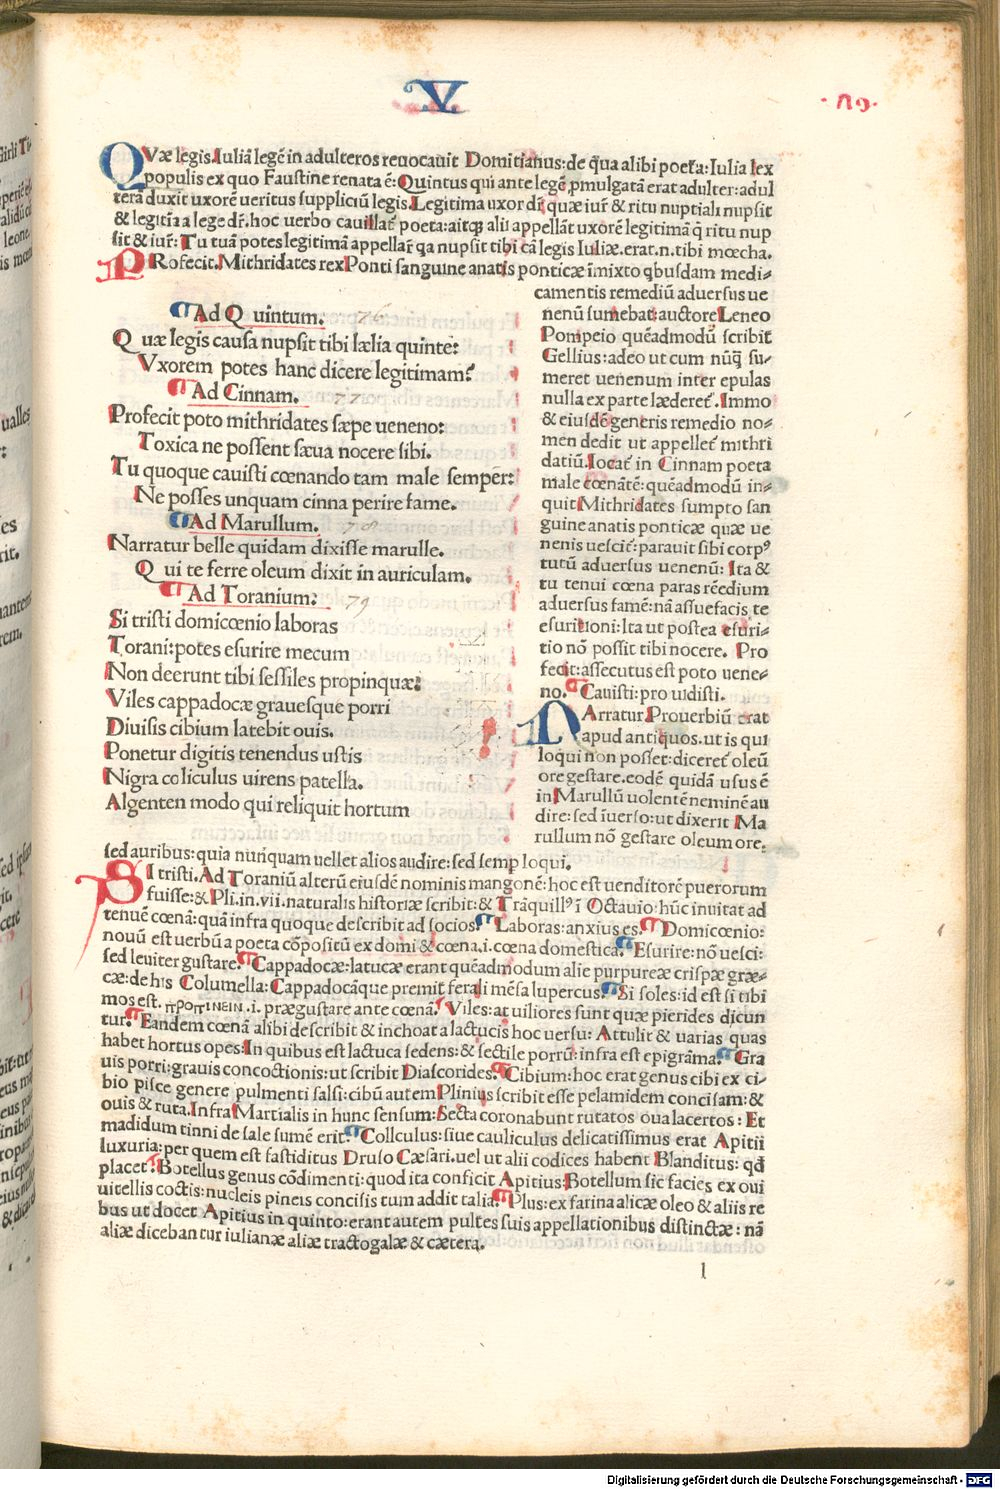 V
QVæ legis. Iuliā legē in adulteros reuocauit Domitianus: de qua alibi poeta: Iulia lex
populis ex quo Faustine renata ē: Quintus qui ante legē ꝓmulgatā erat adulter: adul
terā duxit uxorē ueritus suppliciū legis. Legitima uxor dr̄ quæ iur̄ & ritu nuptiali nupsit
& legitīa a lege dr̄. hoc uerbo cauillat̄ poeta: aitqꝫ alii appellāt uxorē legitimā q̄ ritu nup
sit & iur̄: Tu tuā potes legitimā appellar̄ qa nupsit tibi cā legis Iuliæ. erat. n. tibi mœcha.
PRofecit. Mithridates rex Ponti sanguine anatis ponticæ īmixto qbusdam medi-
camentis remediū aduersus ue
nenū sumebat: auctore Leneo
Pompeio quēadmodū scribit
Gellius: adeo ut cum nūq̄ su-
meret uenenum inter epulas
nulla ex parte læderet̄. Immo
& eiusdē generis remedio no-
men dedit ut appellet̄ mithri
datiū. Iocat̄ in Cinnam poeta
male cœnātē: quēadmodū in-
quit Mithridates sumpto san
guine anatis ponticæ quæ ue
nenis uescit̄: parauit sibi corpꝰ
tutū aduersus uenenū: Ita &
tu tenui cœna paras rēedium
aduersus famē: nā assuefacis te
esuritioni: Ita ut postea esuri-
tio nō possit tibi nocere. Pro
fecit: assecutus est poto uene-
no. Cauisti: pro uidisti.
NArratur Prouerbiū erat
apud antiquos. ut is qui
loqui non posset: diceret̄ oleū
ore gestare. eodē quidā usus ē
in Marullū uolentē neminē au
dire: sed īuerso: ut dixerit Ma
rullum nō gestare oleum ore:
Ad Q uintum. 76
Q uæ legis causa nupsit tibi lælia quinte:
Vxorem potes hanc dicere legitimam?
Ad Cinnam. 77
Profecit poto mithridates sæpe ueneno:
Toxica ne possent sæua nocere sibi.
Tu quoque cauisti cœnando tam male semper:
Ne posses unquam cinna perire fame.
Ad Marullum. 78
Narratur belle quidam dixisse marulle.
Q ui te ferre oleum dixit in auriculam.
Ad Toranium: 79
Si tristi domicœnio laboras
Torani: potes esurire mecum
Non deerunt tibi sessiles propinquæ:
Viles cappadocæ grauesque porri
Diuisis cibium latebit ouis.
Ponetur digitis tenendus ustis
Nigra coliculus uirens patella.
Algenten modo qui reliquit hortum
sed auribus: quia nunquam uellet alios audire: sed semp loqui.
SI tristi. Ad Toraniū alterū eiusdē nominis mangonē: hoc est uenditorē puerorum
fuisse: & Pli. in. vii. naturalis historiæ scribit: & Trāquillꝰ ī Octauio: hūc inuitat ad
tenuē cœnā: quā infra quoque describit ad socios. Laboras: anxius es. Domicœnio:
nouū est uerbū a poeta cōpositū ex domi & cœna. i. cœna domestica. Esurire: nō uesci:
sed leuiter gustare. Cappadocæ: latucæ erant quēadmodum alie purpureæ crispæ græ-
cæ: de his Columella: Cappadocāque premit ferali mēsa lupercus. Si soles: id est si tibi
mos est. ΠΡΟΠΙΝΕΙΝ .i. prægustare ante cœnā. Viles: at uiliores sunt quæ pierides dicun
tur. Eandem cœnā alibi describit & inchoat a lactucis hoc uersu: Attulit & uarias quas
habet hortus opes: In quibus est lactuca sedens: & sectile porrū: infra est epigrāma. Gra
uis porri: grauis concoctionis: ut scribit Diascorides. Cibium: hoc erat genus cibi ex ci-
bio pisce genere pulmenti salsi: cibū autem Plinius scribit esse pelamidem concisam: &
ouis & ruta. Infra Martialis in hunc sensum: Secta coronabunt rutatos oua lacertos: Et
madidum tinni de sale sumē erit. Collculus: siue cauliculus delicatissimus erat Apitii
luxuria: per quem est fastiditus Druso Cæsari. uel ut alii codices habent Blanditus: qđ
placet. Botellus genus cōdimenti: quod ita conficit Apitius: Botellum sic facies ex oui
uitellis coctis: nucleis pineis concisis tum addit talia. Plus: ex farina alicæ oleo & aliis re
bus ut docet Apitius in quinto: erant autem pultes suis appellationibus distinctæ: nā
aliæ dicebantur iulianæ aliæ tractogalæ & cætera.
l